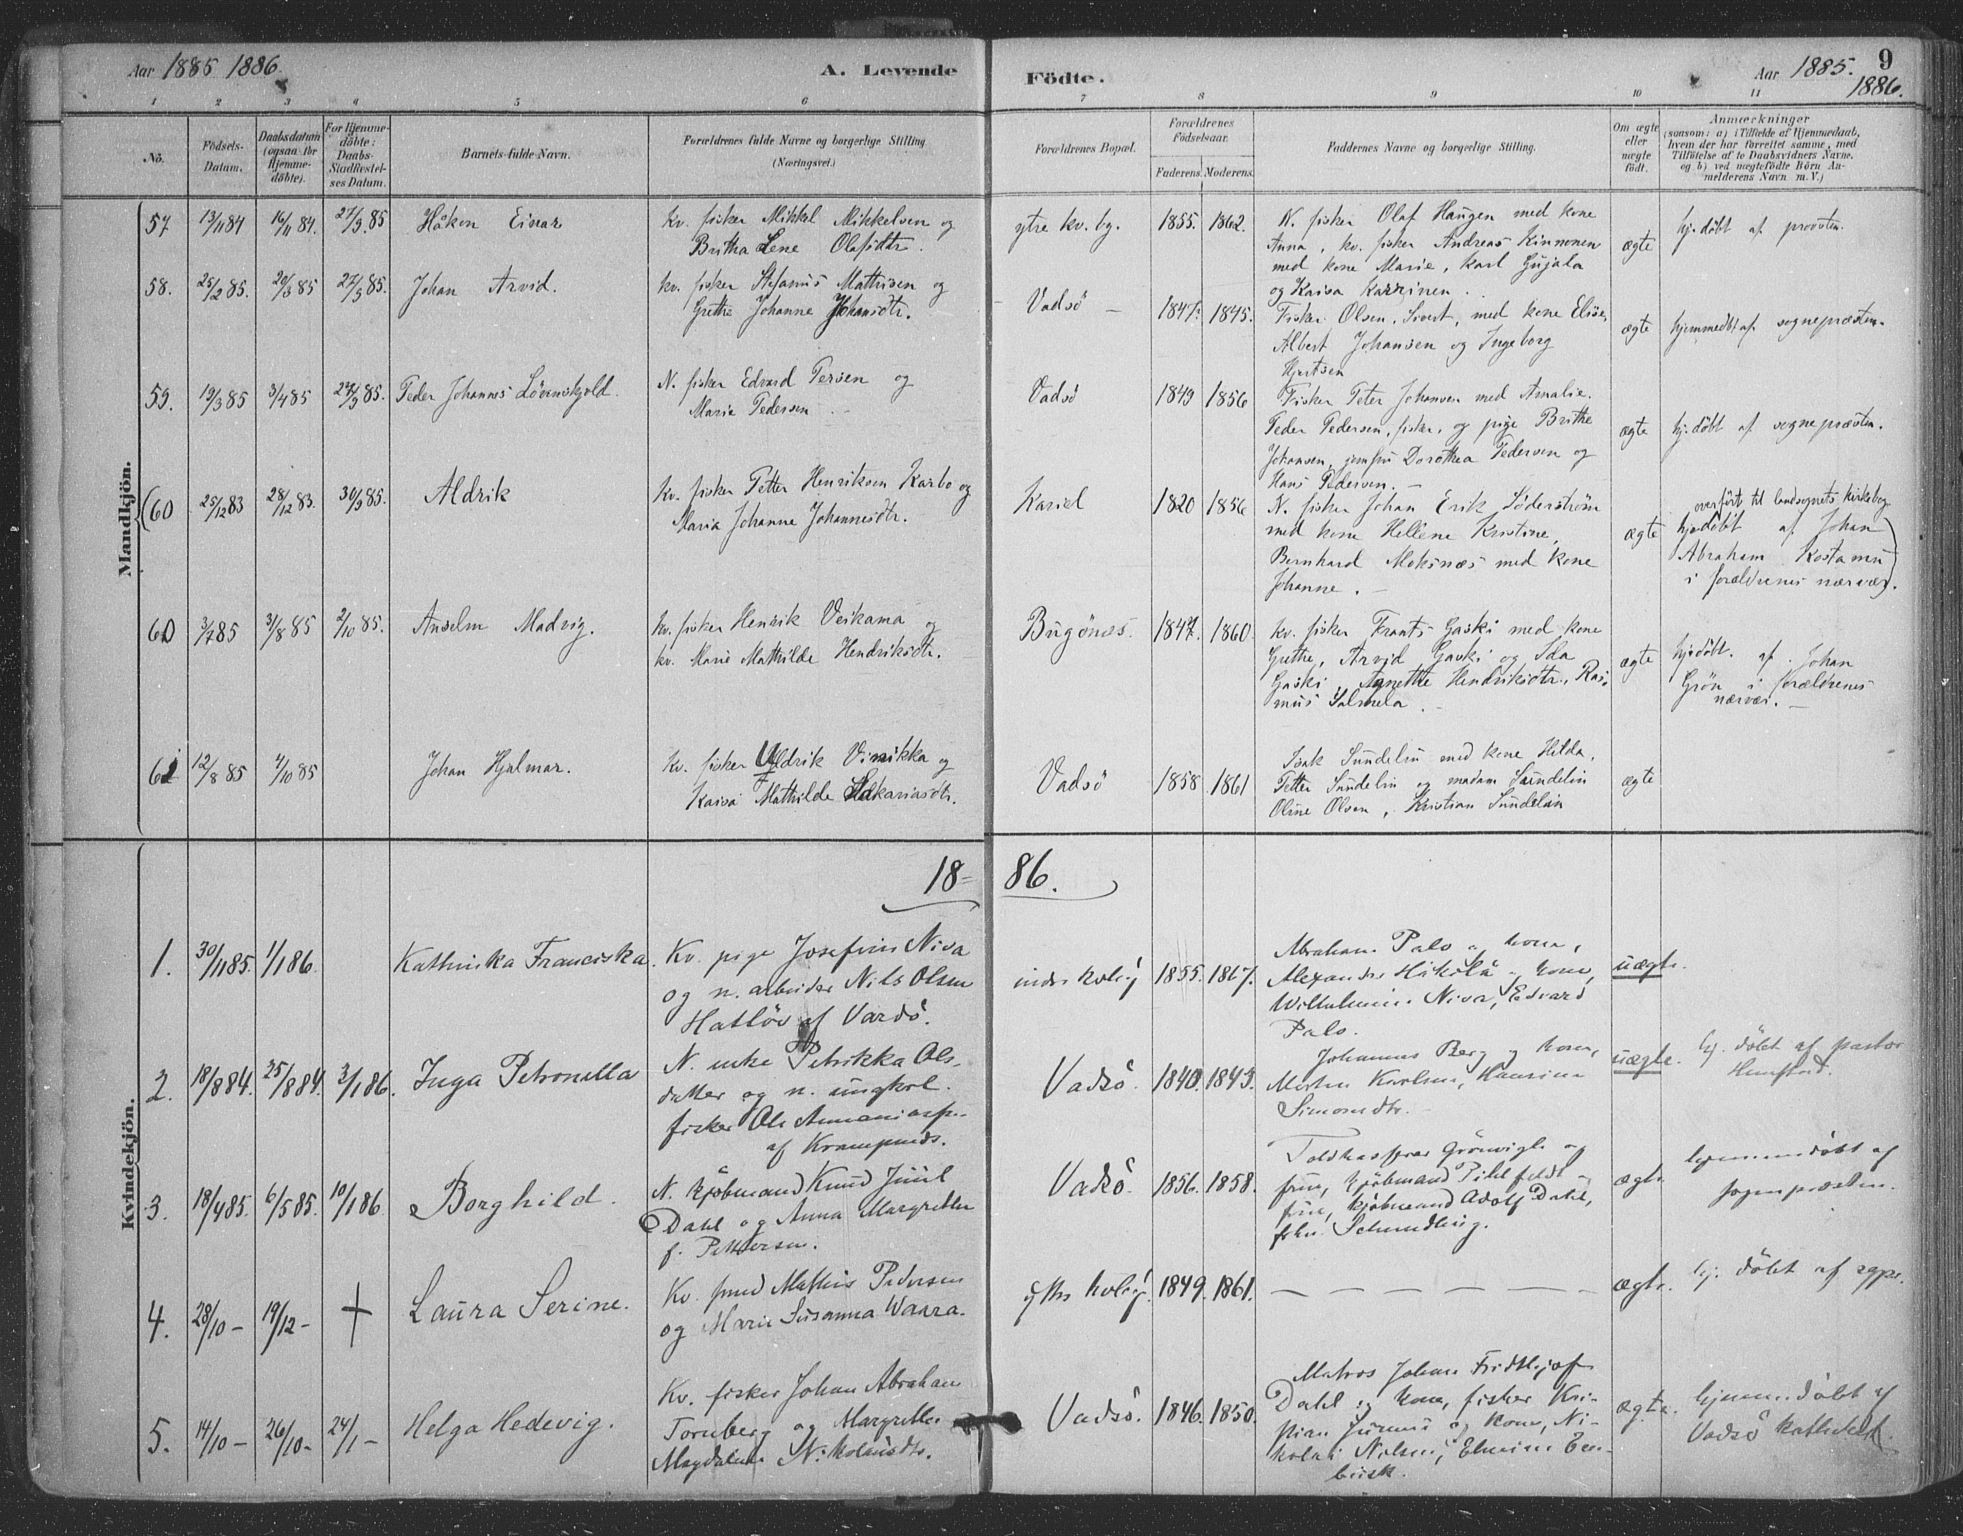 Aar 1885 1886.
A. Levende
Födte.
Aar 1885. 9
1886.
1 2 3 4 5 6 7 8 9 10 11
No.
Födsels-Datum.
Daabsdatum (ogsaa for Hjemme-döbte).
For Hjemme-döbte: Daabs-Stadfæstel-ses Datum.
Barnets fulde Navn.
Forældrenes fulde Navne og borgerlige Stilling (Næringsvei.)
Forældrenes Bopæl.
Forældrenes Födselsaar.
Faderens. Moderens.
Faddernes Navne og borgerlige Stilling.
Om ægte eller uægte födt.
Anmærkninger
(saasom: a) i Tilfælde af Hjemmedaab, hvem der har forrettet samme, med Tilföielse af to Daabsvidners Navne, og b) ved uægtefödte Börn Anmelderens Navn m. V.)
Mandkjön.
57 13/11 84 16/11 84. 27/3 85 Håkon Einar
Kv. fisker Mikkel Mikkelsen og
Britha Lene Olafsdtr.
ytre kv. by. 1855. 1862.
N. fisker Olaf Haugen med kone
Anna, kv. fisker Andreas Kinnonen
med kone Marie, Karl Gujala
og Kaisa Karrinen.
ægte hj.döbt af provsten.
58. 25/2 85. 20/3 85 27/3 85. Johan Arvid.
kv. fisker Stefanus Mathisen og
Grethe Johanne Johansdtr.
Vadsö 1847. 1845.
Fisker Olsen, Sivert, med kone Elise,
Albert Johansen og Ingeborg
Hjertsen
ægte hjemmedbt af sognepræsten.
59. 19/3 85 3/4 85 Peder Johannes Lövenskjold.
N. fisker Edvard Persen og
Marie Pedersen.
Vadsö 1849 1856
Fisker Peter Johansen med Amalie.
Peder Pedersen, fisker, og pige Brithe
Johansen, jomfru Dorothea Pedersen og
Hans Pedersen.
ægte hj.döbt af sognepræsten.
(60 25/12 83 28/12 83. 30/3 85. Aldrik
Kv. fisker Petter Henriksen Karbo og
Maria Johanne Johannesdtr.
Karied 1820 1856
N. fisker Johan Erik Söderström
med kone Hellene Kristine,
Bernhard Moksnæs med kone
Johanne.
ægte
overfört til landsognets kirkebog
hjedöbt af Johan
Abraham Kostamu
i forældrenes nærvær.)
60 3/7 85 3/8 85 2/10 85. Anselm Madvig.
kv. fisker Henrik Veikama og
kv. Marie Mathilde Hendriksdtr.
Bugönes. 1847. 1860.
kv. fisker Frants Gaski med kone
Grethe, Arvid Gaski og Ida
Gaski, Agnethe Hendriksdtr, Ras-
mus Salmela.
ægte
hjedöbt. af Johan
Grön i forældrenes
nærvær.
61 12/8 85 4/10 85 Johan Hjalmar.
Kv. fisker Uldrik Vinikka og
Kaisa Mathilde Sakariasdtr.
Vadsö 1858 1861
Isak Sundelin med kone Hilda,
Petter Sundelin og madam Sundelin
Oline Olsen, Kristian Sundelin
ægte
18= 86.
Kvindekjön.
1. 30/11 85. 1/1 86. Kathinka Franciska.
Kv. pige Josefine Niva
og n. arbeider Nils Olsen
Hatlöv af Vardö.
indre kvby 1855. 1867.
Abraham Palo og kone,
Alexander Hikola og kone,
Wilhelmine Niva, Edvard
Palo.
uægte.
2. 18/8 84. 25/8 84. 3/1 86. Inga Petronella
N. enke Petrikka Ols-
datter og n. ungkel.
fisker Ole Ammaniasen
af Krampenæs.
Vadsö. 1840. 1843.
Johannes Berg og kone,
Morten Karlsen, Hansine
Simonsdtr.
uægte.
hj. döbt af pastor
3. 18/4 85. 6/5 85. 10/1 86 Borghild.
N. kjöbmand Knud Juul
Dahl og Anna Margrethe
f. Pettersen.
Vadsö. 1856. 1858.
Toldkasserer Grönvigh og
frue, kjöbmand Pihlfeldt og
frue, kjöbmand Adolf Dahl,
frkn. Schmidling.
ægte.
hjemmedöbt af
sognepræsten.
4. 28/10 – 19/12 – † Laura Serine.
Kv. smed Mathis Pedersen
og Marie Susanna Waara.
ytre kvby 1849. 1861. — — — — — —
ægte. hj. döbt af sgpr.
5. 14/10 – 26/10 – 24/1 – Helga Hedevig.
Kv. fisker Johan Abraham
Tornberg og Margrethe
Magdalena Nikolausdtr.
Vadsö. 1846. 1850.
Matros Johan Fridthjof
Dahl og kone, fisker Kri-
stian Junnus og kone, Ni-
kolai Nilsen, Elmine Een-
buisk.
ægte.
hjemmedöbt af
Vadsö kathechet.